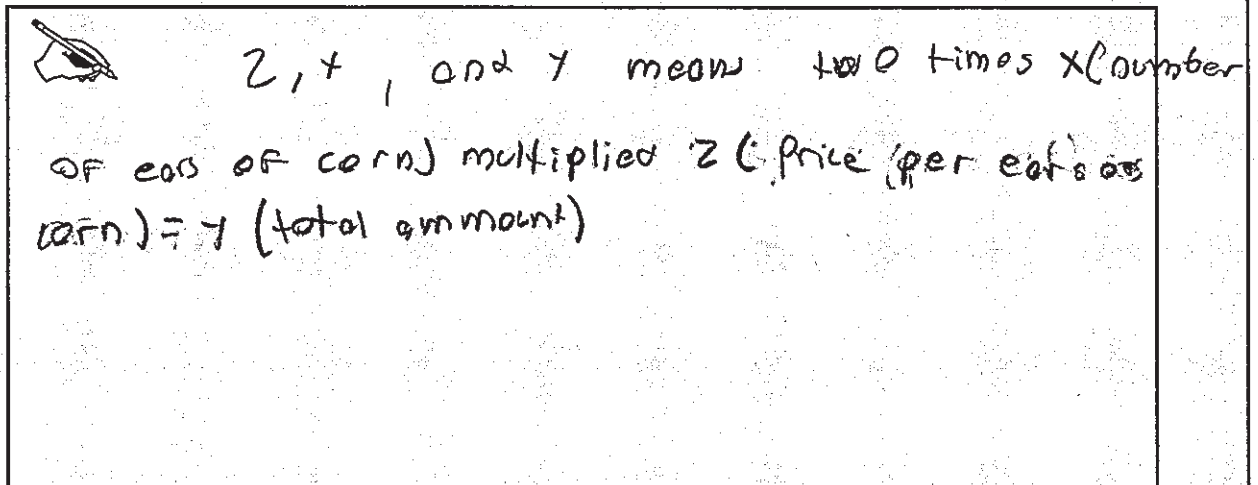 2, x, and y means two times x (number
of ears of corn) multiplied 2 (price per ears of
corn) = y (total ammount)